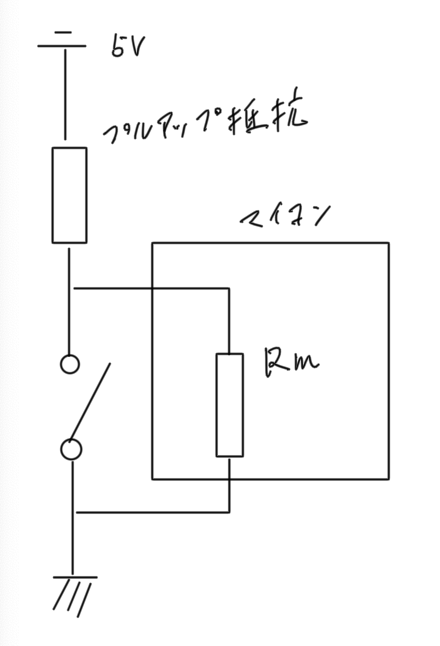 5V
プルアップ抵抗
マイコン
Rm